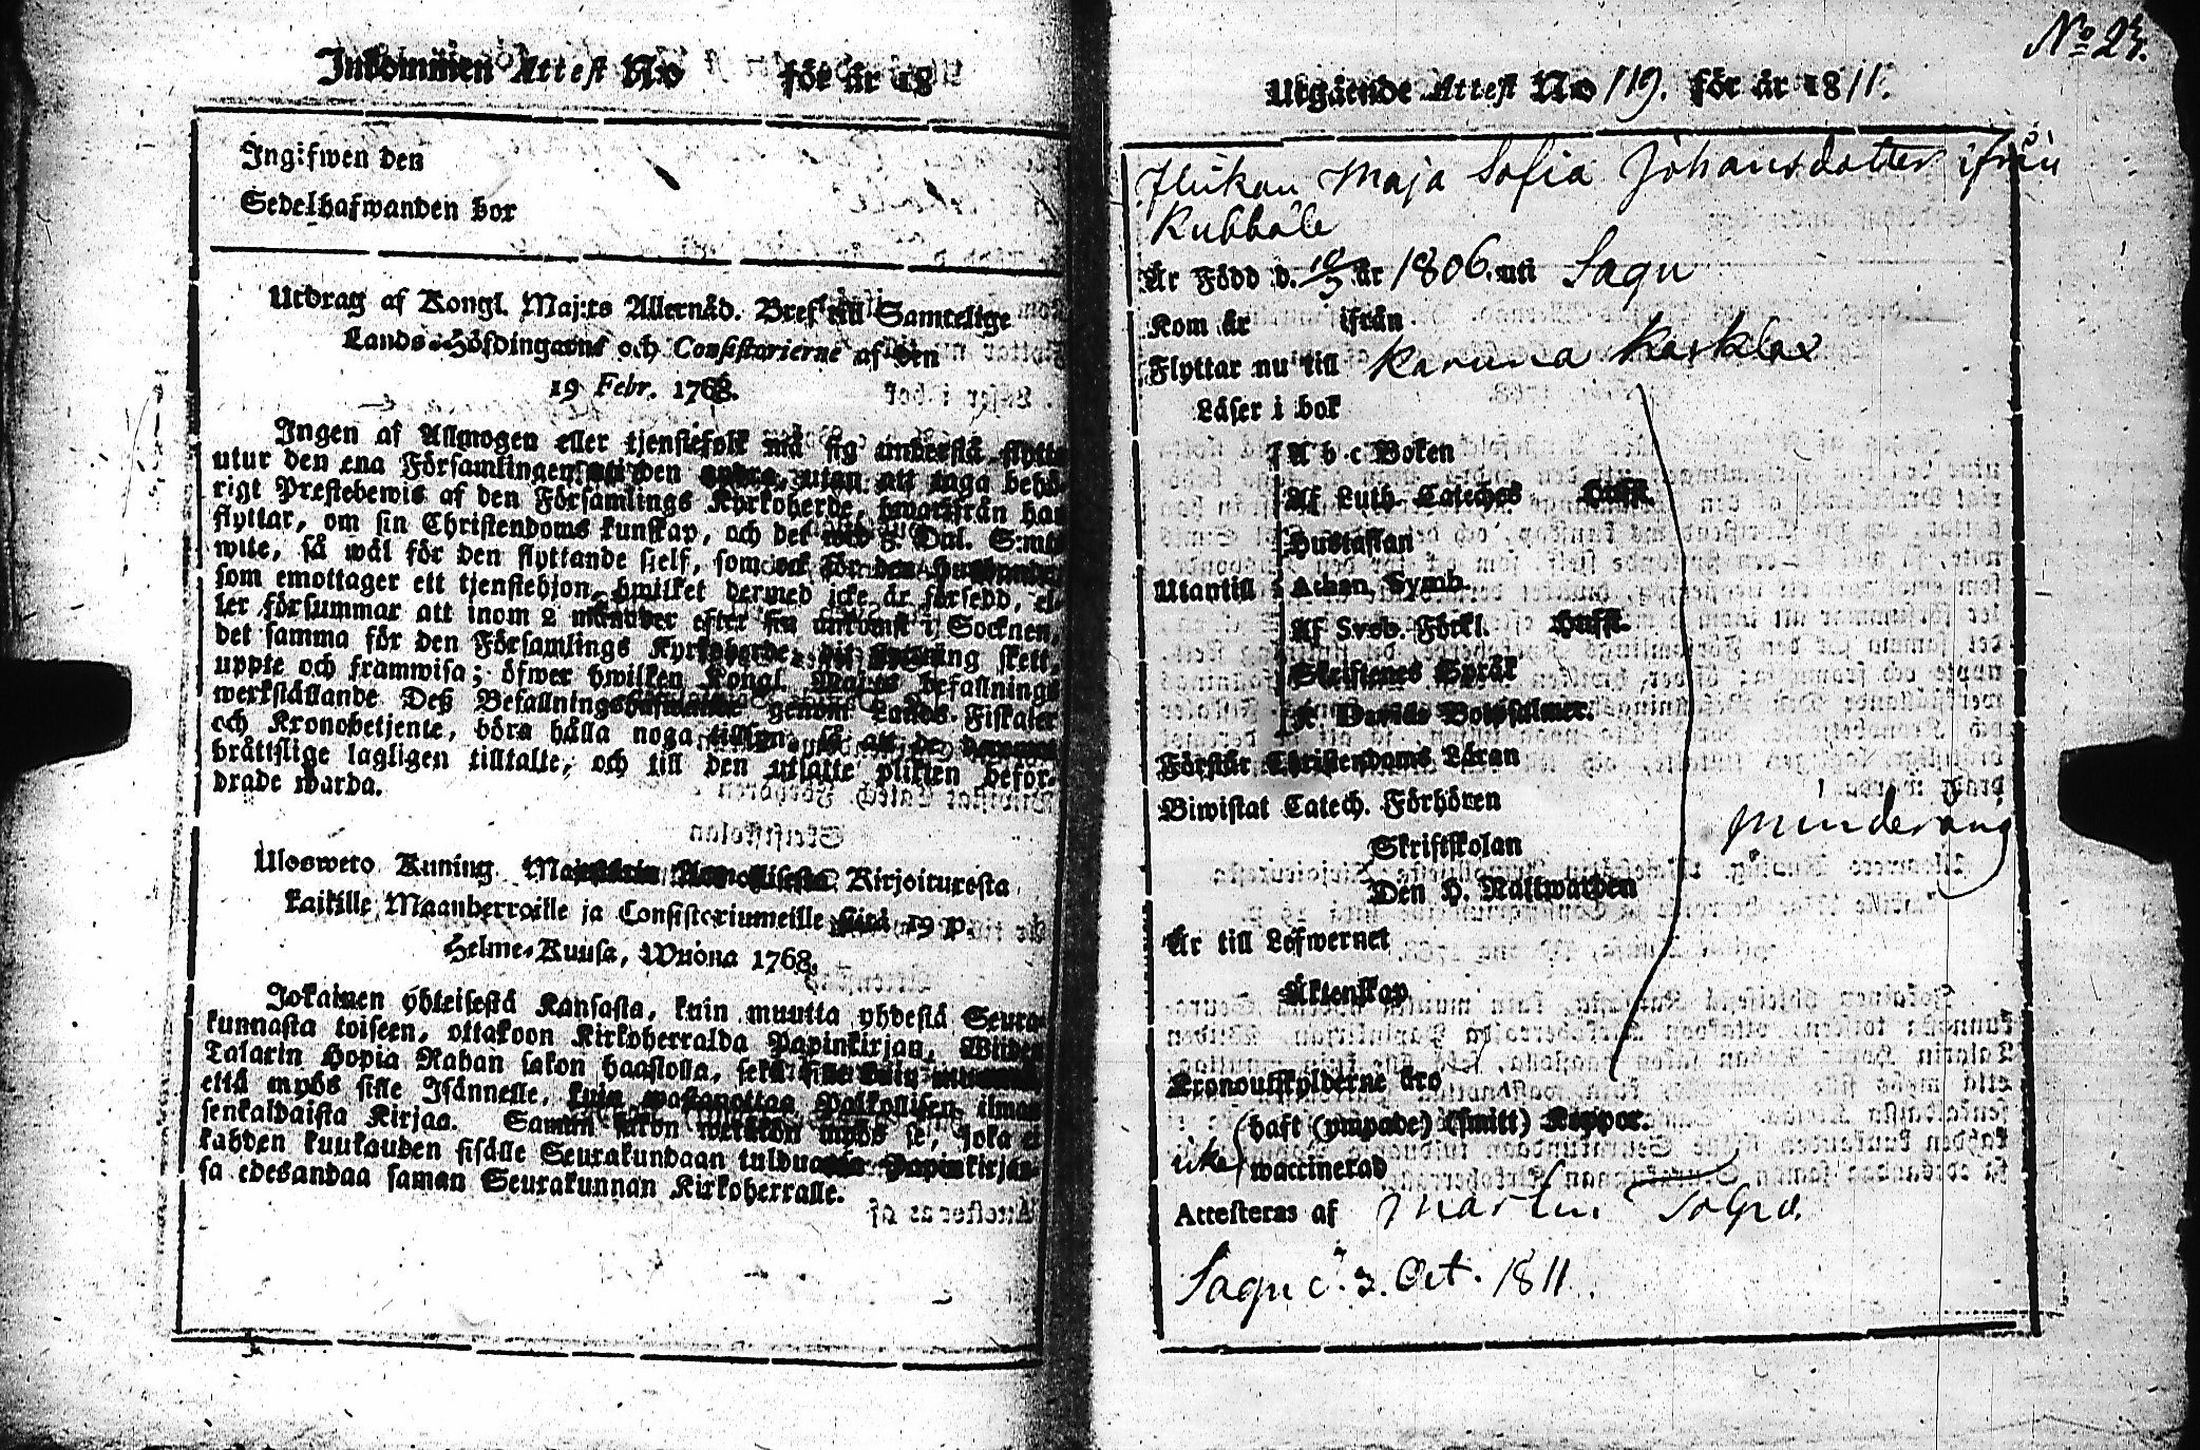 Inkommen Attest No för år 18
Ingifwen den
Sedelhafwanden bor
Utdrag af Kongl. Maj:ts Allernåd. Bref till Samtelige
Lands-Höfdingarne och Consistorierne af den
19 Febr. 1768.
Ingen af Allmogen eller tjenstefolk må sig understå flytta
utur den ena Församlingen uti den andra, utan att taga behö-
rigt Prestebewis af den Församlings Kyrkoherde, hwarifrån han
flyttar, om sin Christendoms kunskap, och det wid 5 Dal. S:mts
wite, så wäl för den flyttande sielf, som ock för den
som emottager ett tjenstehjon, hwilket dermed icke är försedd, el-
ler försummar att inom 2 månader efter sin ankomst i Socknen,
det samma för den Församlings Kyrkoherde, dit flyttning skett,
uppte och framwisa; öfwer hwilken Kongl. Maj:ts befallnings
werkställande Deß Befallningshafwande genom Lands-Fiskaler
och Kronobetjente, böra hålla noga tillsyn, så att de
bråttslige lagligen tilltalte, och till den utsatte plikten befor-
drade warda.
Ulosweto Kuning. Majestetin Armollisesta Kirjoituxesta
kaikille Maanherroille ja Consistoriumeille siitä 19 p.
Helme-Kuusa, Wuona 1768.
Jokainen yhteisestä Kansasta, kuin muutta yhdestä Seura-
kunnasta toiseen, ottakoon Kirkoherralda Papinkirjan, Wiiden
Talarin Hopia Rahan sakon haastolla, sekä sille kuin muuttaa,
että myös sille Isännelle, kuin wastanottaa Palkollisen ilman
senkaldaista Kirjaa. Saman sakon wetäkön myös se, joka ei
kahden kuukauden sisälle Seurakundaan tulduansa Papinkirjan-
sa edesandaa saman Seurakunnan Kirkoherralle.
No 23.
Utgående Attest No 119. för år 1811.
Flickan Maja Sofia Johansdotter ifrån
Kubböle
Är Född d. 10/3 år 1806. uti Sagu
Kom år ifrån
Flyttar nu till Karuna Karklax
Läser i bok
A b c Boken
Af Luth. Cateches Hufst.
Hustaflan
Utantill Athan. Symb.
Af Sveb. Förkl. Hufst.
Skriftenes Språk
K. Davids Botpsalmer.
Förstår Christendoms Läran
Biwistat Catech. Förhören
minderårig
Skriftskolan
Den H. Nattwarden
Är till Lefwernet
Äktenskap
Kronoutskylderne äro
haft (ympade) (smitt) Koppor.
icke waccinerad
Attesteras af Martin Tolpo.
Sagu d. 3. Oct. 1811.